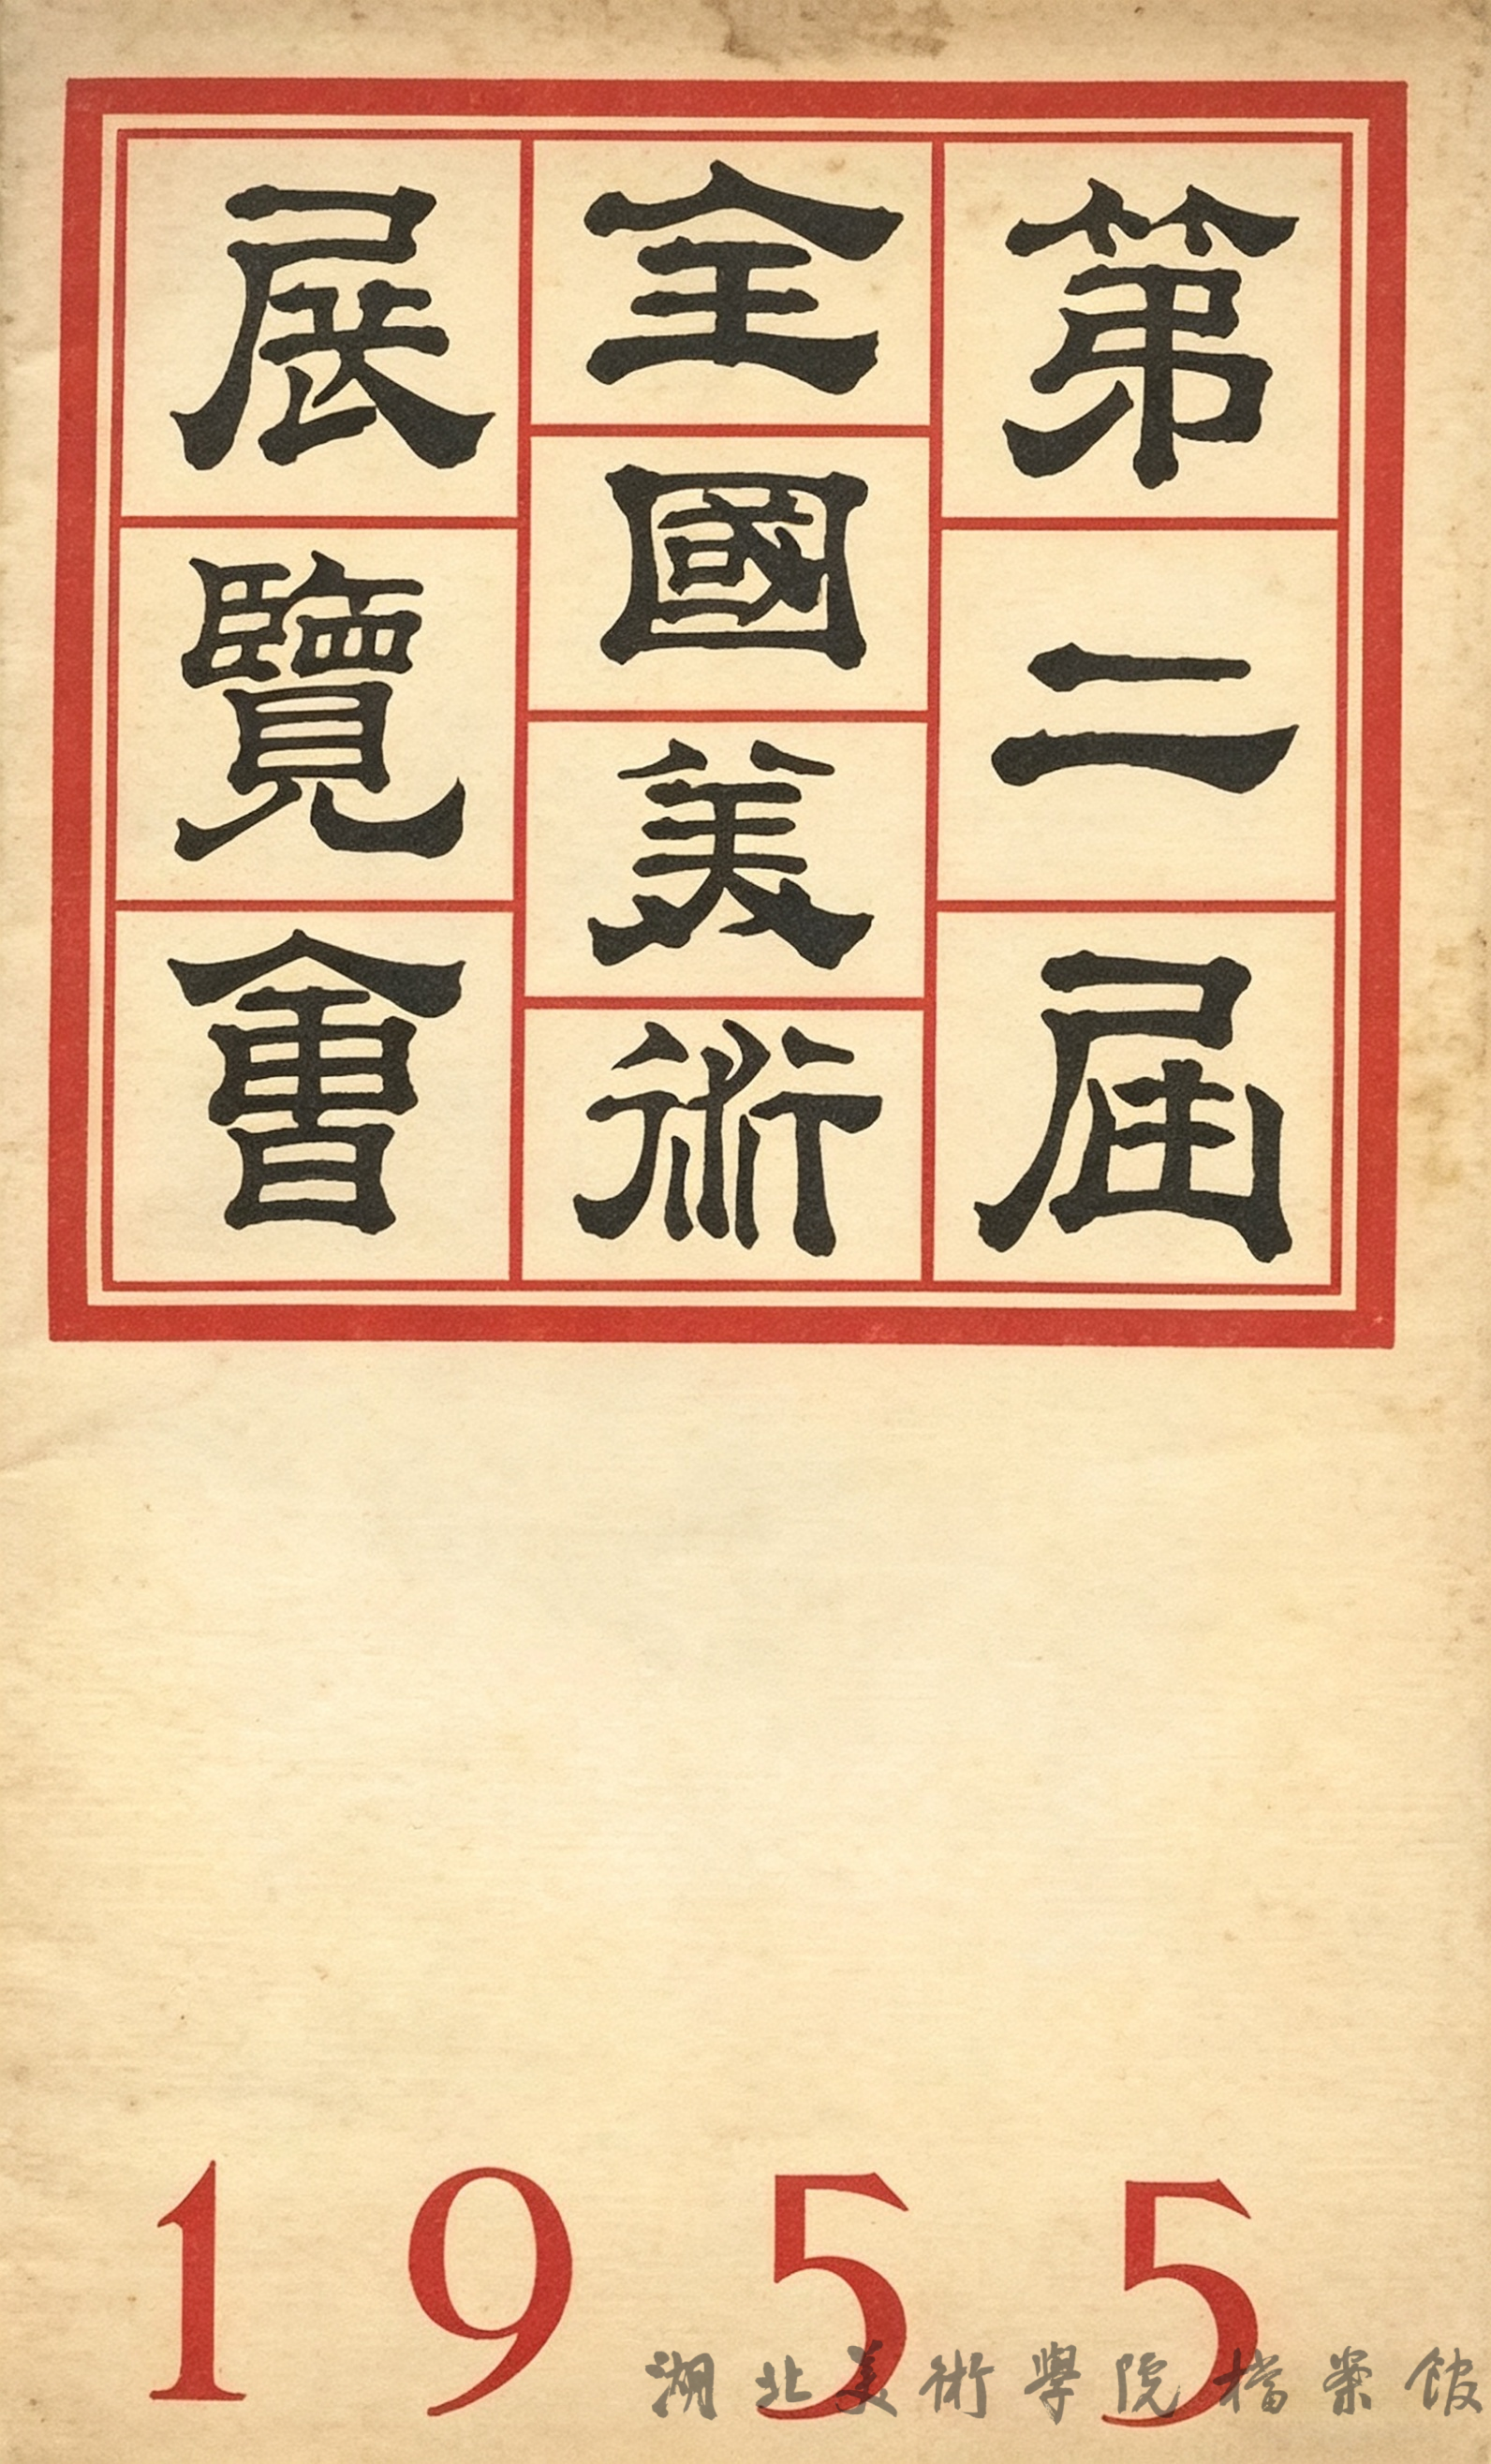 第二屆
全國美術
展覽會
1955
湖北美術學院檔案館